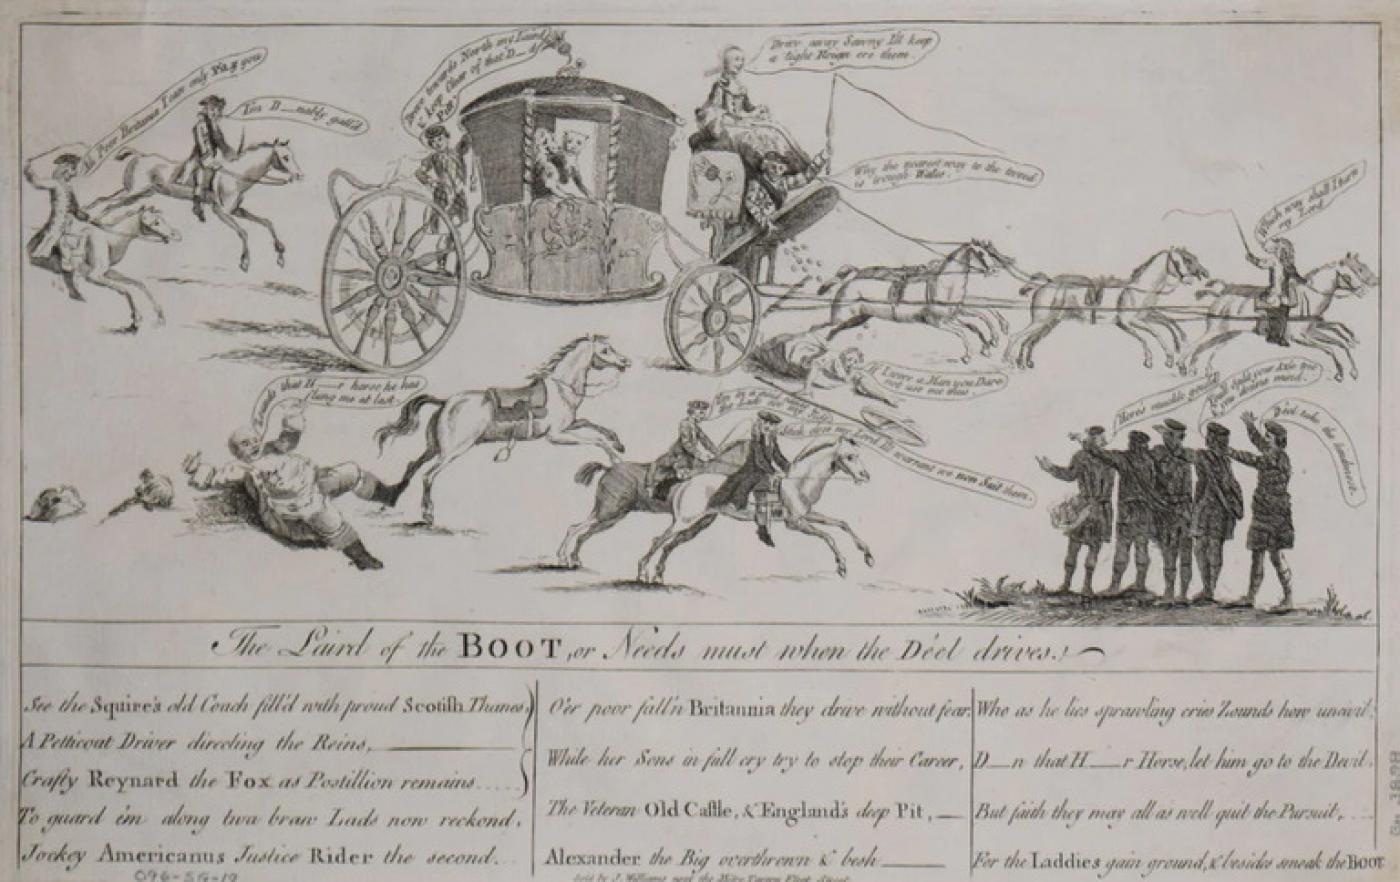 Ah Poor Britania I can only Pity you
Tis D__nably gall'd
Drive towards North my Laird
& keep Clear of that D__d
Pitt
Drive away Sawny I'll keep
a tight Reign ore them
Why the nearest way to the tweed
is trough Wales.
Which way shall I turn
my Lord
If I were a Man you Dare
not use me thus
Zounds that H__r horse he has
flung me at last
my Lord I'll warrant we mon Suit them.
Here's muckle good
You'll spile your Axle gin
you dinna mind.
Deel take the hindmost
The Laird of the BOOT, or Needs must when the De'el drives.
See the Squire's old Coach fill'd with proud Scotish Thanes,
A Petticoat Driver directing the Reins,
Crafty Reynard the Fox as Postillion remains....
To guard 'em along twa braw Lads now reckond,
Jockey Americanus Justice Rider the second...
O'er poor fall'n Britannia they drive without fear,
While her Sons in full cry try to stop their Career,
The Veteran Old Castle, & England's deep Pit,
Alexander the Big overthrown & besh
Who as he lies sprawling cries Zounds how uncivil,
D__n that H__r Horse, let him go to the Devil.
But faith they may all as well quit the Pursuit,
For the Laddies gain ground, & besides smeak the BOOT
sold by J. Williams next the Mitre Tavern Fleet Street
096-SG-19